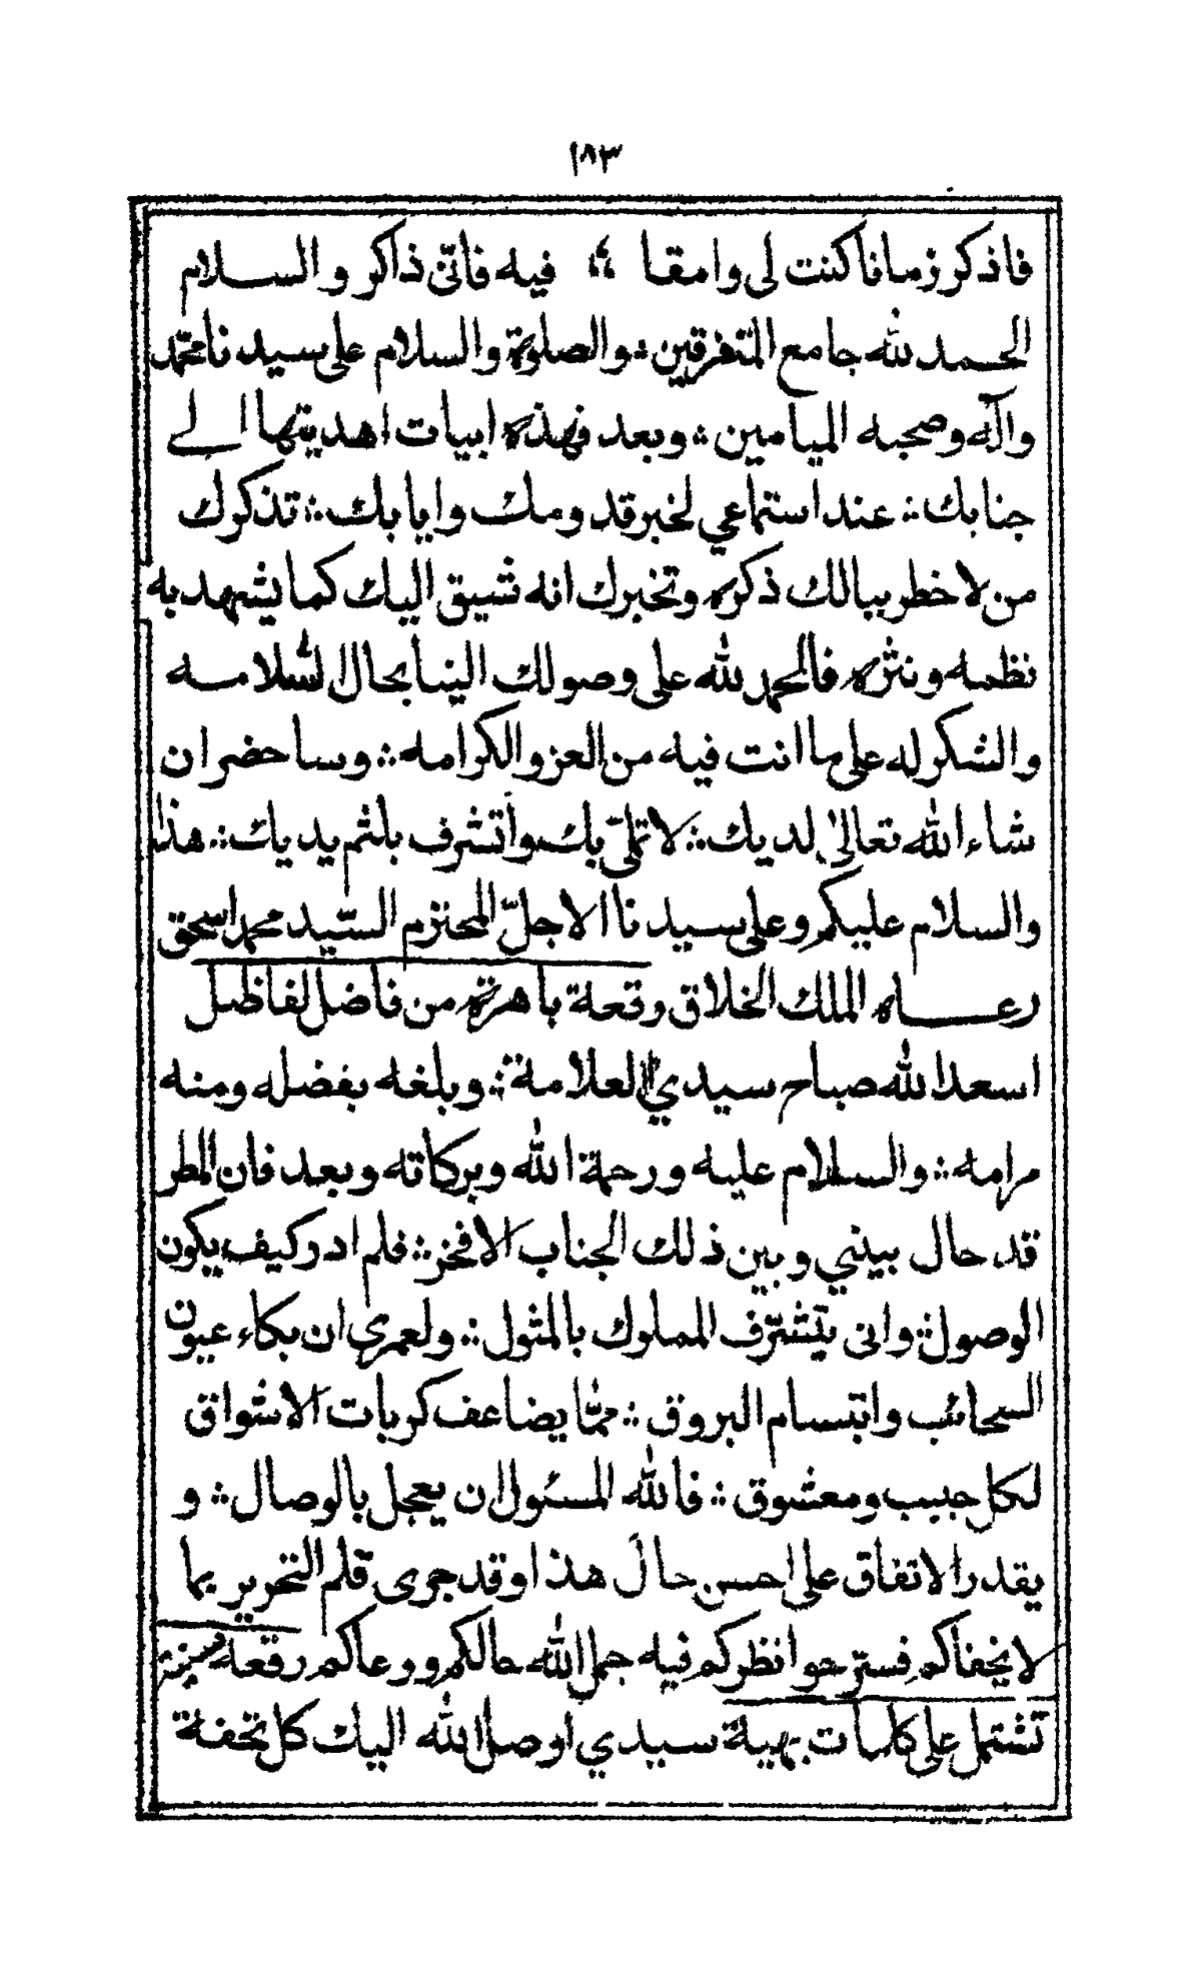 ١٨٣
فاذكر زمانا كنت لي وامقا ؞ فيه فانّى ذاكر والسلام
الحمد لله جامع المتفرقين ؞ والصلوة والسلام على سيدنا محمّد
وآله وصحبه الميامين ؞ وبعد فهذه ابيات اهديتها الے
جنابك ؞ عند استماعي لخبر قدومك وايابك ؞ تذكرك
من لا خطر ببالك ذكره وتخبرك انه شيق اليك كما يشهد به
نظمه ونثره فالحمد لله على وصولك الينا بحال السّلامه
والشكر له على ما انت فيه من العز والكرامه ؞ وساحضر ان
شاء الله تعالى لديك ؞ لاتملّى بك وأتشرف بلثم يديك ؞ هذا
والسلام عليكم وعلى سيدنا الاجلّ المحترم السّيد محمد اسحق
رعاه الملك الخلاق رقعة باهرة من فاضل لفاظل
اسعد الله صباح سيدي العلامة ؞ وبلغه بفضله ومنه
مرامه ؞ والسلام عليه ورحمة الله وبركاته وبعد فان المطر
قد حال بيني وبين ذلك الجناب الافخر ؞ فلم ادر كيف يكون
الوصول ؞ وانى يتشرّف المملوك بالمثول ؞ ولعمري ان بكاء عيون
السحائب وابتسام البروق ؞ ممّا يضاعف كربات الاشواق
لكل حبيب ومعشوق ؞ فالله المسئول ان يعجل بالوصال ؞ و
يقدر الاتفاق على احسن حالَ هذا وقد جرى قلم التحرير بما
لا يخفاكم فسترحوا نظركم فيه جمل الله حالكم ورعاكم رقعة
تشتمل على كلمات بهية سيدي اوصل الله اليك كل تحفة